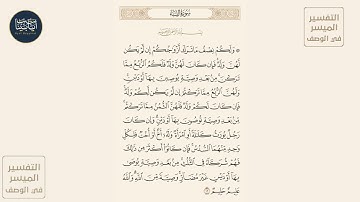 التفسير
الميسر
في الوصف
سُورَةُ النِّسَاءِ
۞ وَلَكُمْ نِصْفُ مَا تَرَكَ أَزْوَٰجُكُمْ إِن لَّمْ يَكُن
لَّهُنَّ وَلَدٌ فَإِن كَانَ لَهُنَّ وَلَدٌ فَلَكُمُ ٱلرُّبُعُ مِمَّا
تَرَكْنَ مِنۢ بَعْدِ وَصِيَّةٍ يُوصِينَ بِهَآ أَوْ دَيْنٍ
وَلَهُنَّ ٱلرُّبُعُ مِمَّا تَرَكْتُمْ إِن لَّمْ يَكُن لَّكُمْ وَلَدٌ
فَإِن كَانَ لَكُمْ وَلَدٌ فَلَهُنَّ ٱلثُّمُنُ مِمَّا تَرَكْتُم
مِّنۢ بَعْدِ وَصِيَّةٍ تُوصُونَ بِهَآ أَوْ دَيْنٍ وَإِن كَانَ
رَجُلٌ يُورَثُ كَلَٰلَةً أَوِ ٱمْرَأَةٌ وَلَهُۥٓ أَخٌ أَوْ أُخْتٌ فَلِكُلِّ
وَٰحِدٍ مِّنْهُمَا ٱلسُّدُسُ فَإِن كَانُوٓا۟ أَكْثَرَ مِن ذَٰلِكَ
فَهُمْ شُرَكَآءُ فِى ٱلثُّلُثِ مِنۢ بَعْدِ وَصِيَّةٍ يُوصَىٰ
بِهَآ أَوْ دَيْنٍ غَيْرَ مُضَآرٍّ وَصِيَّةً مِّنَ ٱللَّهِ وَٱللَّهُ
عَلِيمٌ حَلِيمٌ
التفسير
الميسر
في الوصف